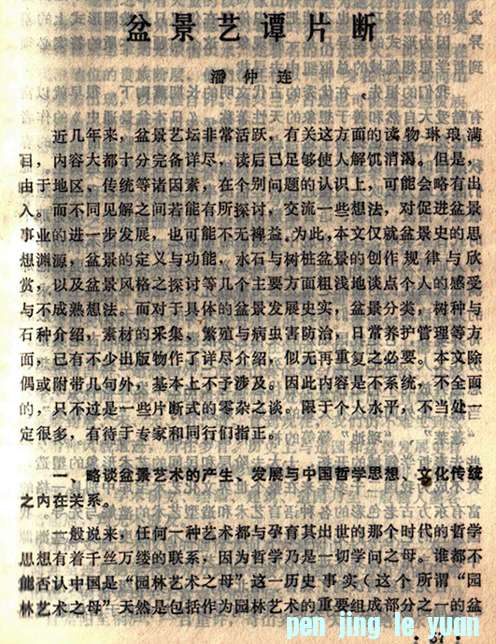 盆景艺谭片断
潘仲连
近几年来，盆景艺坛非常活跃，有关这方面的读物琳琅满
目，内容大都十分完备详尽，读后已足够使人解饥消渴。但是，
由于地区、传统等诸因素，在个别问题的认识上，可能会略有出
入。而不同见解之间若能有所探讨，交流一些想法，对促进盆景
事业的进一步发展，也可能不无裨益。为此，本文仅就盆景史的思
想渊源，盆景的定义与功能，水石与树桩盆景的创作规律与欣
赏，以及盆景风格之探讨等几个主要方面粗浅地谈点个人的感受
与不成熟想法。而对于具体的盆景发展史实，盆景分类，树种与
石种介绍，素材的采集、繁殖与病虫害防治，日常养护管理等方
面，已有不少出版物作了详尽介绍，似无再重复之必要。本文除
偶或附带几句外，基本上不予涉及。因此内容是不系统，不全面
的，只不过是一些片断式的零杂之谈。限于个人水平，不当处一
定很多，有待于专家和同行们指正。
一、略谈盆景艺术的产生、发展与中国哲学思想、文化传统
之内在关系。
一般说来，任何一种艺术都与孕育其出世的那个时代的哲学
思想有着千丝万缕的联系，因为哲学乃是一切学问之母。谁都不
能否认中国是“园林艺术之母”这一历史事实（这个所谓“园
林艺术之母”天然是包括作为园林艺术的重要组成部分之一的盆
pen jing le yuan
31